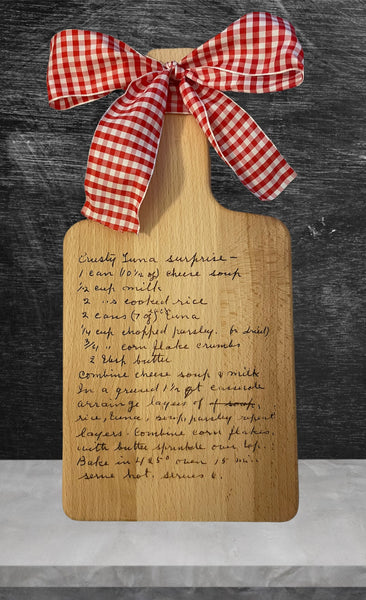 Crusty Tuna surprise —
1 can (10½ oz) cheese soup
½ cup milk
2 "s cooked rice
2 cans (7 oz) Tuna
¼ cup chopped parsley. (or dried)
¾ " corn flake crumbs
2 tbsp butter
Combine cheese soup & milk
In a greased 1½ qt casserole
arrange layers of soup,
rice, tuna, soup, parsley repeat
layers. Combine corn flakes.
with butter sprinkle over top.
Bake in 425° oven 15 min.
serve hot. serves 6.